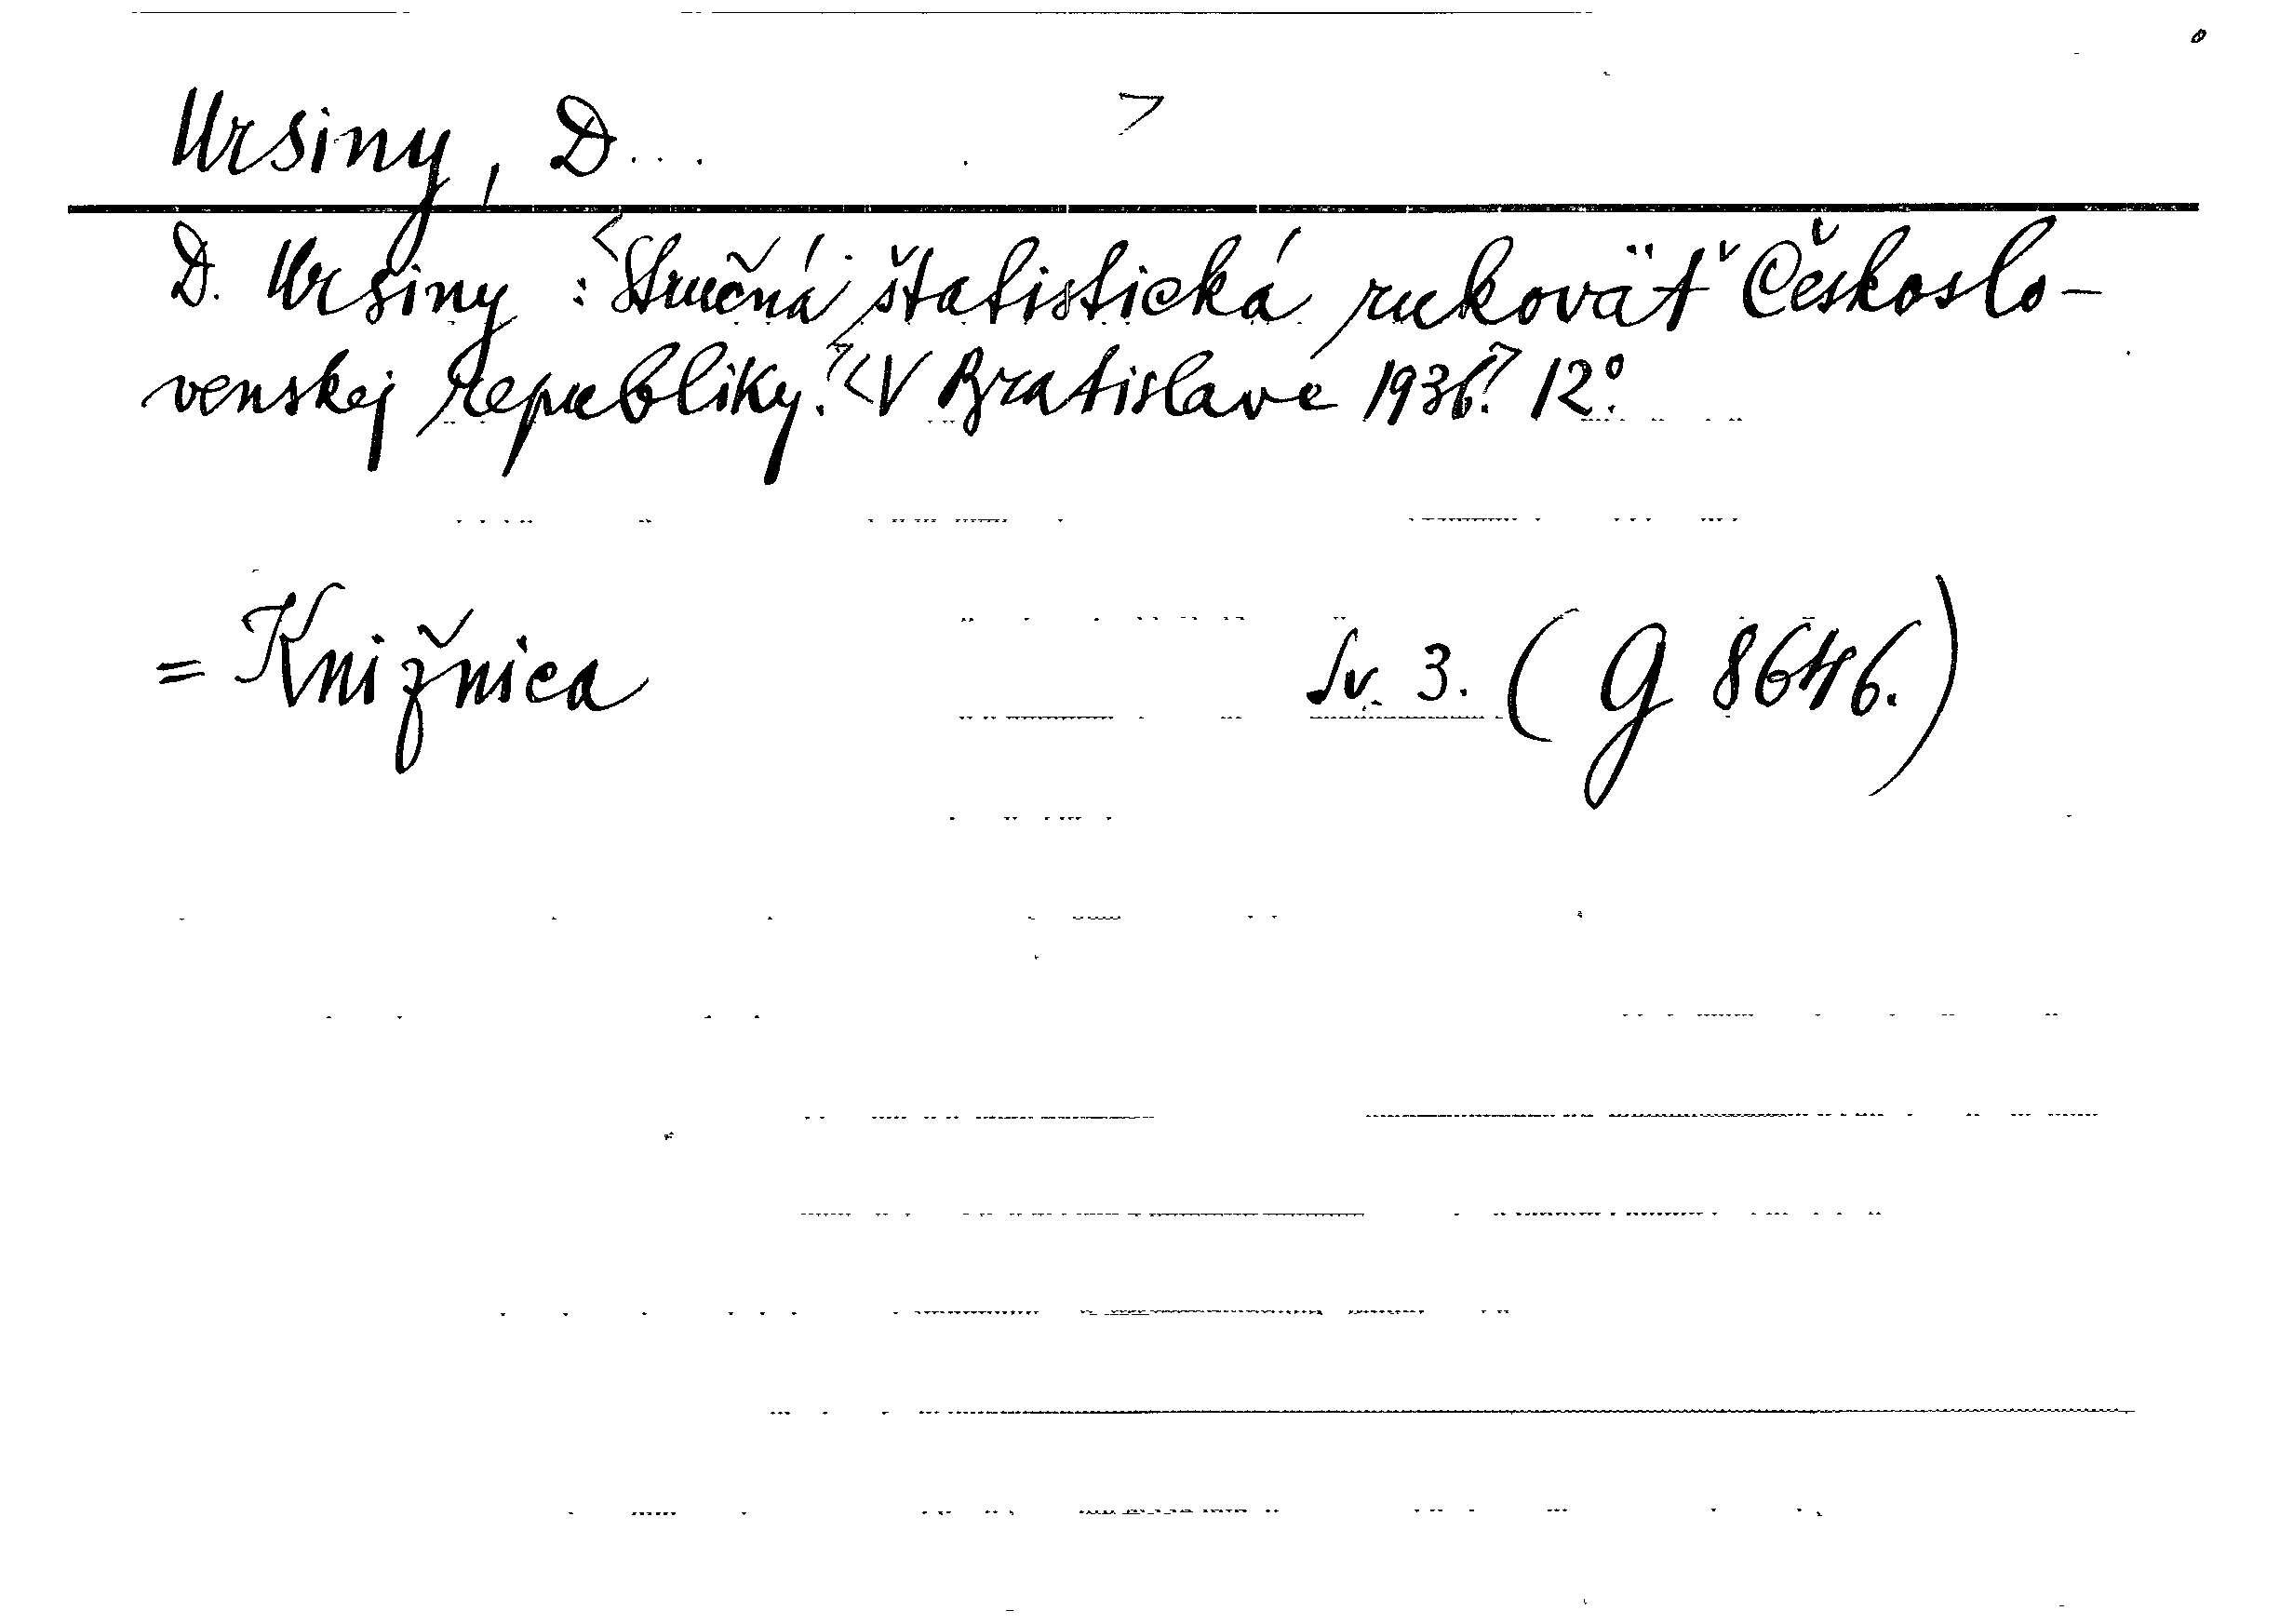 Ursiny, D... >
D. Ursiny : <Stručná štatistická rukovät' Českoslo-
venskej republiky.> <V Bratislave 1936.> 12°.
= Knižnica Sv. 3. (G 8646.)